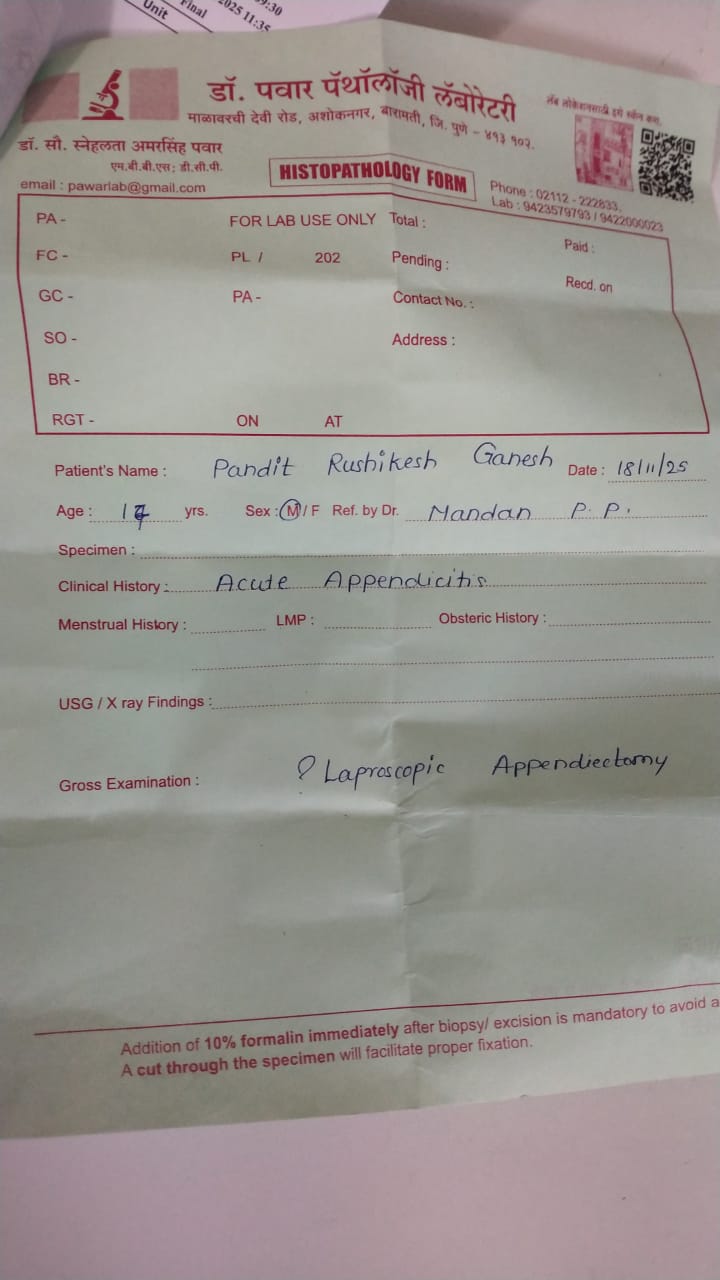 09:30
2025 11:35
Final
Unit
डॉ. पवार पॅथॉलॉजी लॅबोरेटरी
माळावरची देवी रोड, अशोकनगर, बारामती, जि. पुणे - ४१३ १०२.
लॅब लोकेशनसाठी इथे स्कॅन करा.
डॉ. सौ. स्नेहलता अमरसिंह पवार
एम.बी.बी.एस; डी.सी.पी.
email : pawarlab@gmail.com
HISTOPATHOLOGY FORM
Phone : 02112 - 222833,
Lab : 9423579793 / 9422000023
PA - FOR LAB USE ONLY Total : Paid :
FC - PL / 202 Pending : Recd. on
GC - PA - Contact No. :
SO - Address :
BR -
RGT - ON AT
Patient's Name : Pandit Rushikesh Ganesh Date : 18/11/25
Age : 17 yrs. Sex : M / F Ref. by Dr. Mandan P. P.
Specimen :
Clinical History : Acute Appendicitis
Menstrual History : LMP : Obsteric History :
USG / X ray Findings :
Gross Examination : ? Laproscopic Appendiectomy
Addition of 10% formalin immediately after biopsy/ excision is mandatory to avoid a
A cut through the specimen will facilitate proper fixation.